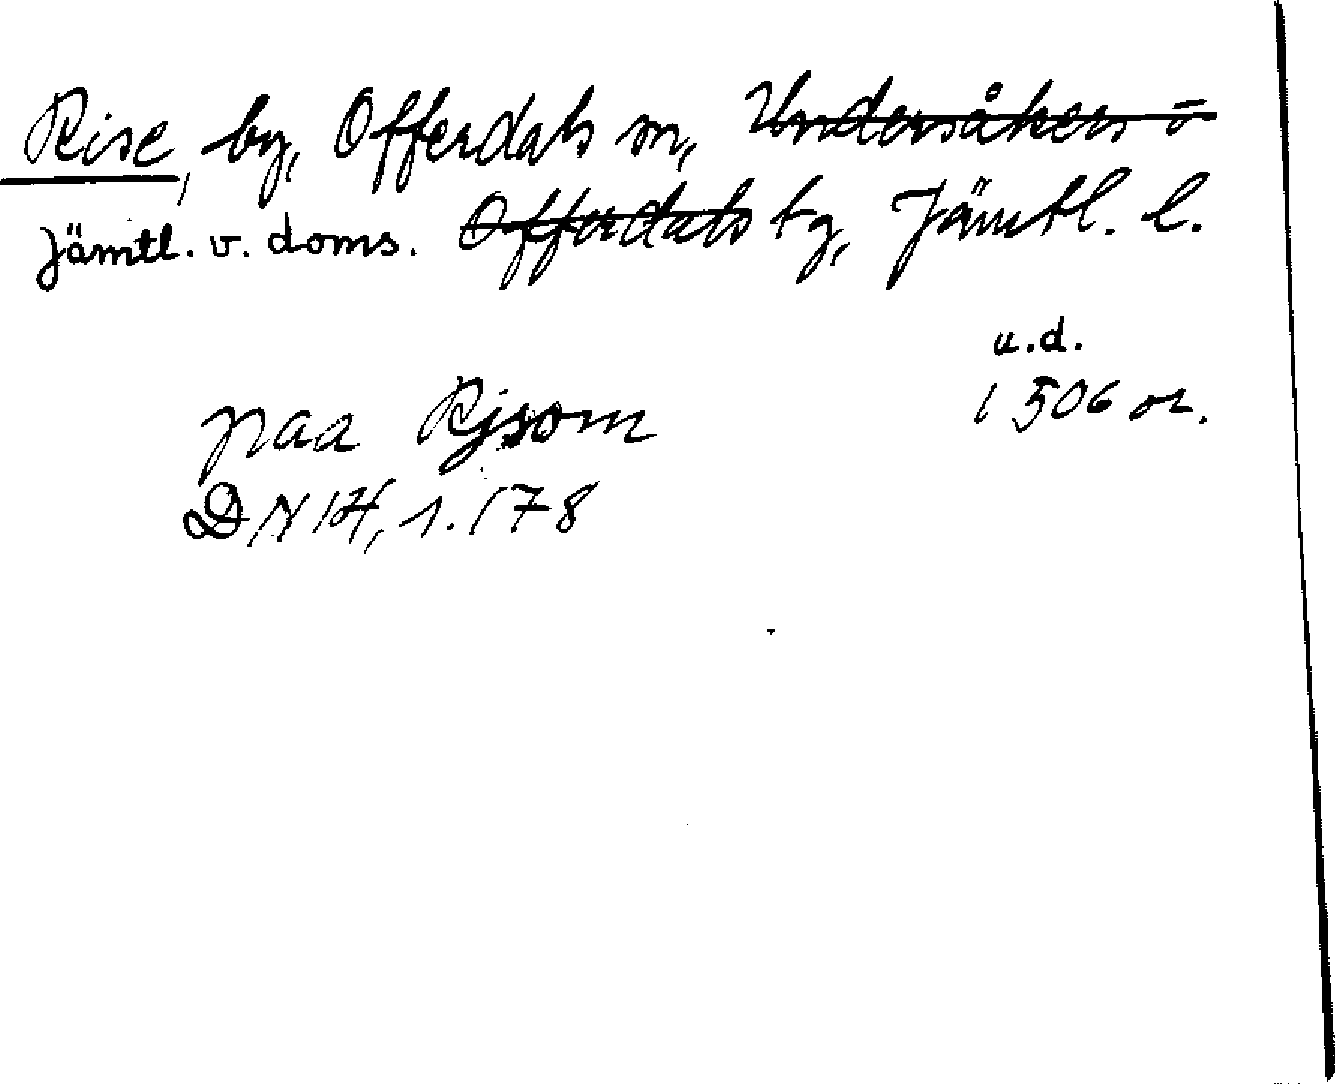 Rise, by, Offerdals sn, Undersåkers o
Jämtl. v. doms. Offerdals tg, Jämtl. l.
u.d.
paa Rjsom 1506 or.
DN 14, 1. 178